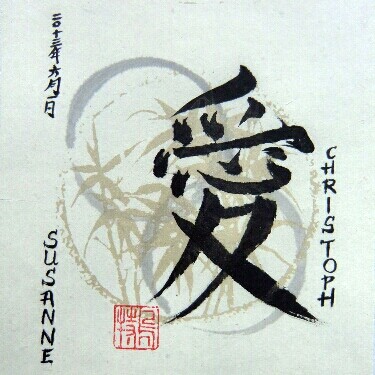 愛
二〇十三年六月一日
CHRISTOPH
SUSANNE